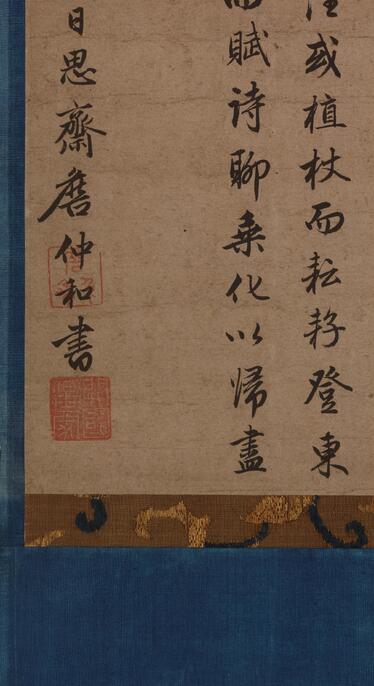 往或植杖而耘耔登東
而賦詩聊乘化以歸盡
日思齋詹仲和書